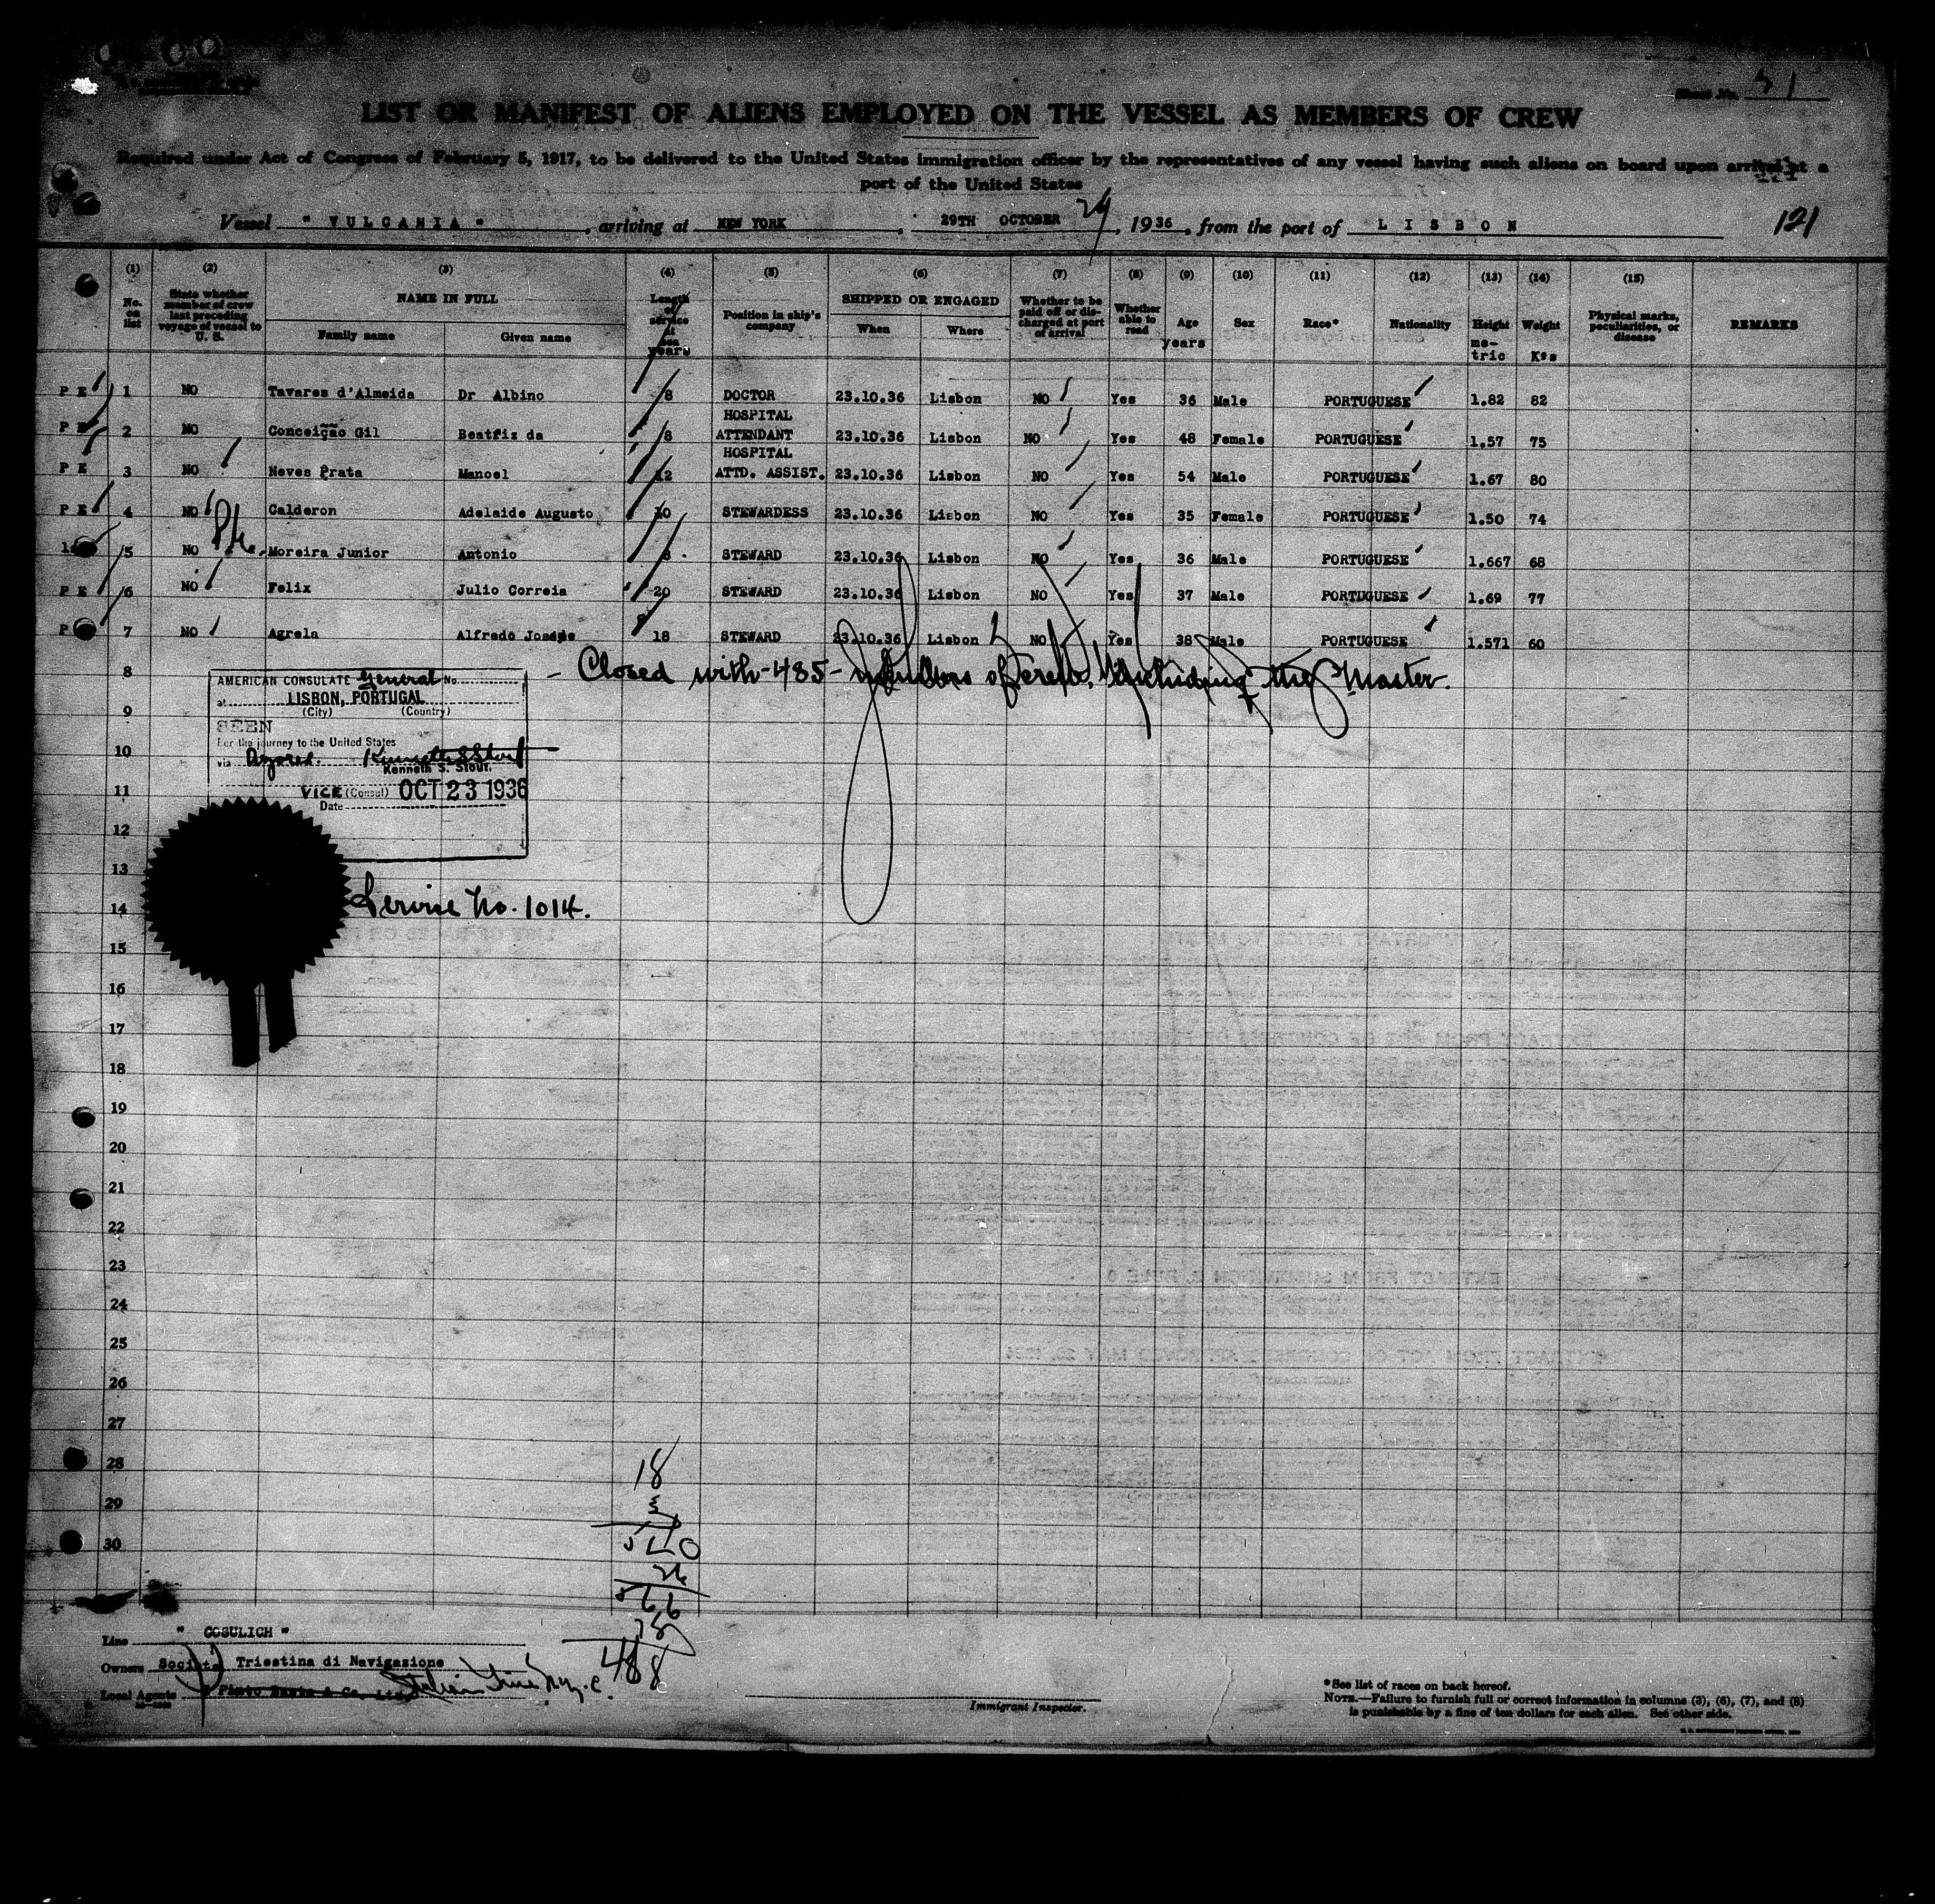 Sheet No.
LIST OR MANIFEST OF ALIENS EMPLOYED ON THE VESSEL AS MEMBERS OF CREW
Required under Act of Congress of February 5, 1917, to be delivered to the United States immigration officer by the representatives of any vessel having such aliens on board upon arrival at a
port of the United States
Vessel " VULCANIA " , arriving at NEW YORK , 29TH OCTOBER 29 , 1936 , from the port of LISBON
121
(1) (2) (3) (4) (5) (6) (7) (8) (9) (10) (11) (12) (13) (14) (15)
No. on list
State whether member of crew last preceding voyage of vessel to U. S.
NAME IN FULL
Family name Given name
Length of service at sea years
Position in ship's company
SHIPPED OR ENGAGED
When Where
Whether to be paid off or discharged at port of arrival
Whether able to read
Age years
Sex
Race*
Nationality
Height metric
Weight Kgs
Physical marks, peculiarities, or disease
REMARKS
P E 1 NO Tavares d'Almeida Dr Albino 8 DOCTOR 23.10.36 Lisbon NO Yes 36 Male PORTUGUESE 1.82 82
P E 2 NO Conceição Gil Beatriz da 8 HOSPITAL ATTENDANT 23.10.36 Lisbon NO Yes 48 Female PORTUGUESE 1.57 75
P E 3 NO Neves Prata Manoel 12 HOSPITAL ATTD. ASSIST. 23.10.36 Lisbon NO Yes 54 Male PORTUGUESE 1.67 80
P E 4 NO Calderon Adelaide Augusto 10 STEWARDESS 23.10.36 Lisbon NO Yes 35 Female PORTUGUESE 1.50 74
5 NO Moreira Junior Antonio 8 STEWARD 23.10.36 Lisbon NO Yes 36 Male PORTUGUESE 1.667 68
P E 6 NO Felix Julio Correia 20 STEWARD 23.10.36 Lisbon NO Yes 37 Male PORTUGUESE 1.69 77
P 7 NO Agrela Alfredo 18 STEWARD 23.10.36 Lisbon NO Yes 38 Male PORTUGUESE 1.571 60
8
- Closed with -485- members of crew, including the Master.
AMERICAN CONSULATE General No.
at LISBON, PORTUGAL
(City) (Country)
SEEN
For the journey to the United States
via Azores. Kenneth S Stout
Kenneth S. Stout.
VICE (Consul) OCT 23 1936
Date
9
10
11
12
13
14
Service No. 1014.
15
16
17
18
19
20
21
22
23
24
25
26
27
28
29
30
18
540
26
566
78
488
Line " COSULICH "
Owners Società Triestina di Navigazione
Local Agents Italian Line N.Y.C.
Immigrant Inspector.
*See list of races on back hereof.
NOTE.—Failure to furnish full or correct information in columns (3), (6), (7), and (8)
is punishable by a fine of ten dollars for each alien. See other side.